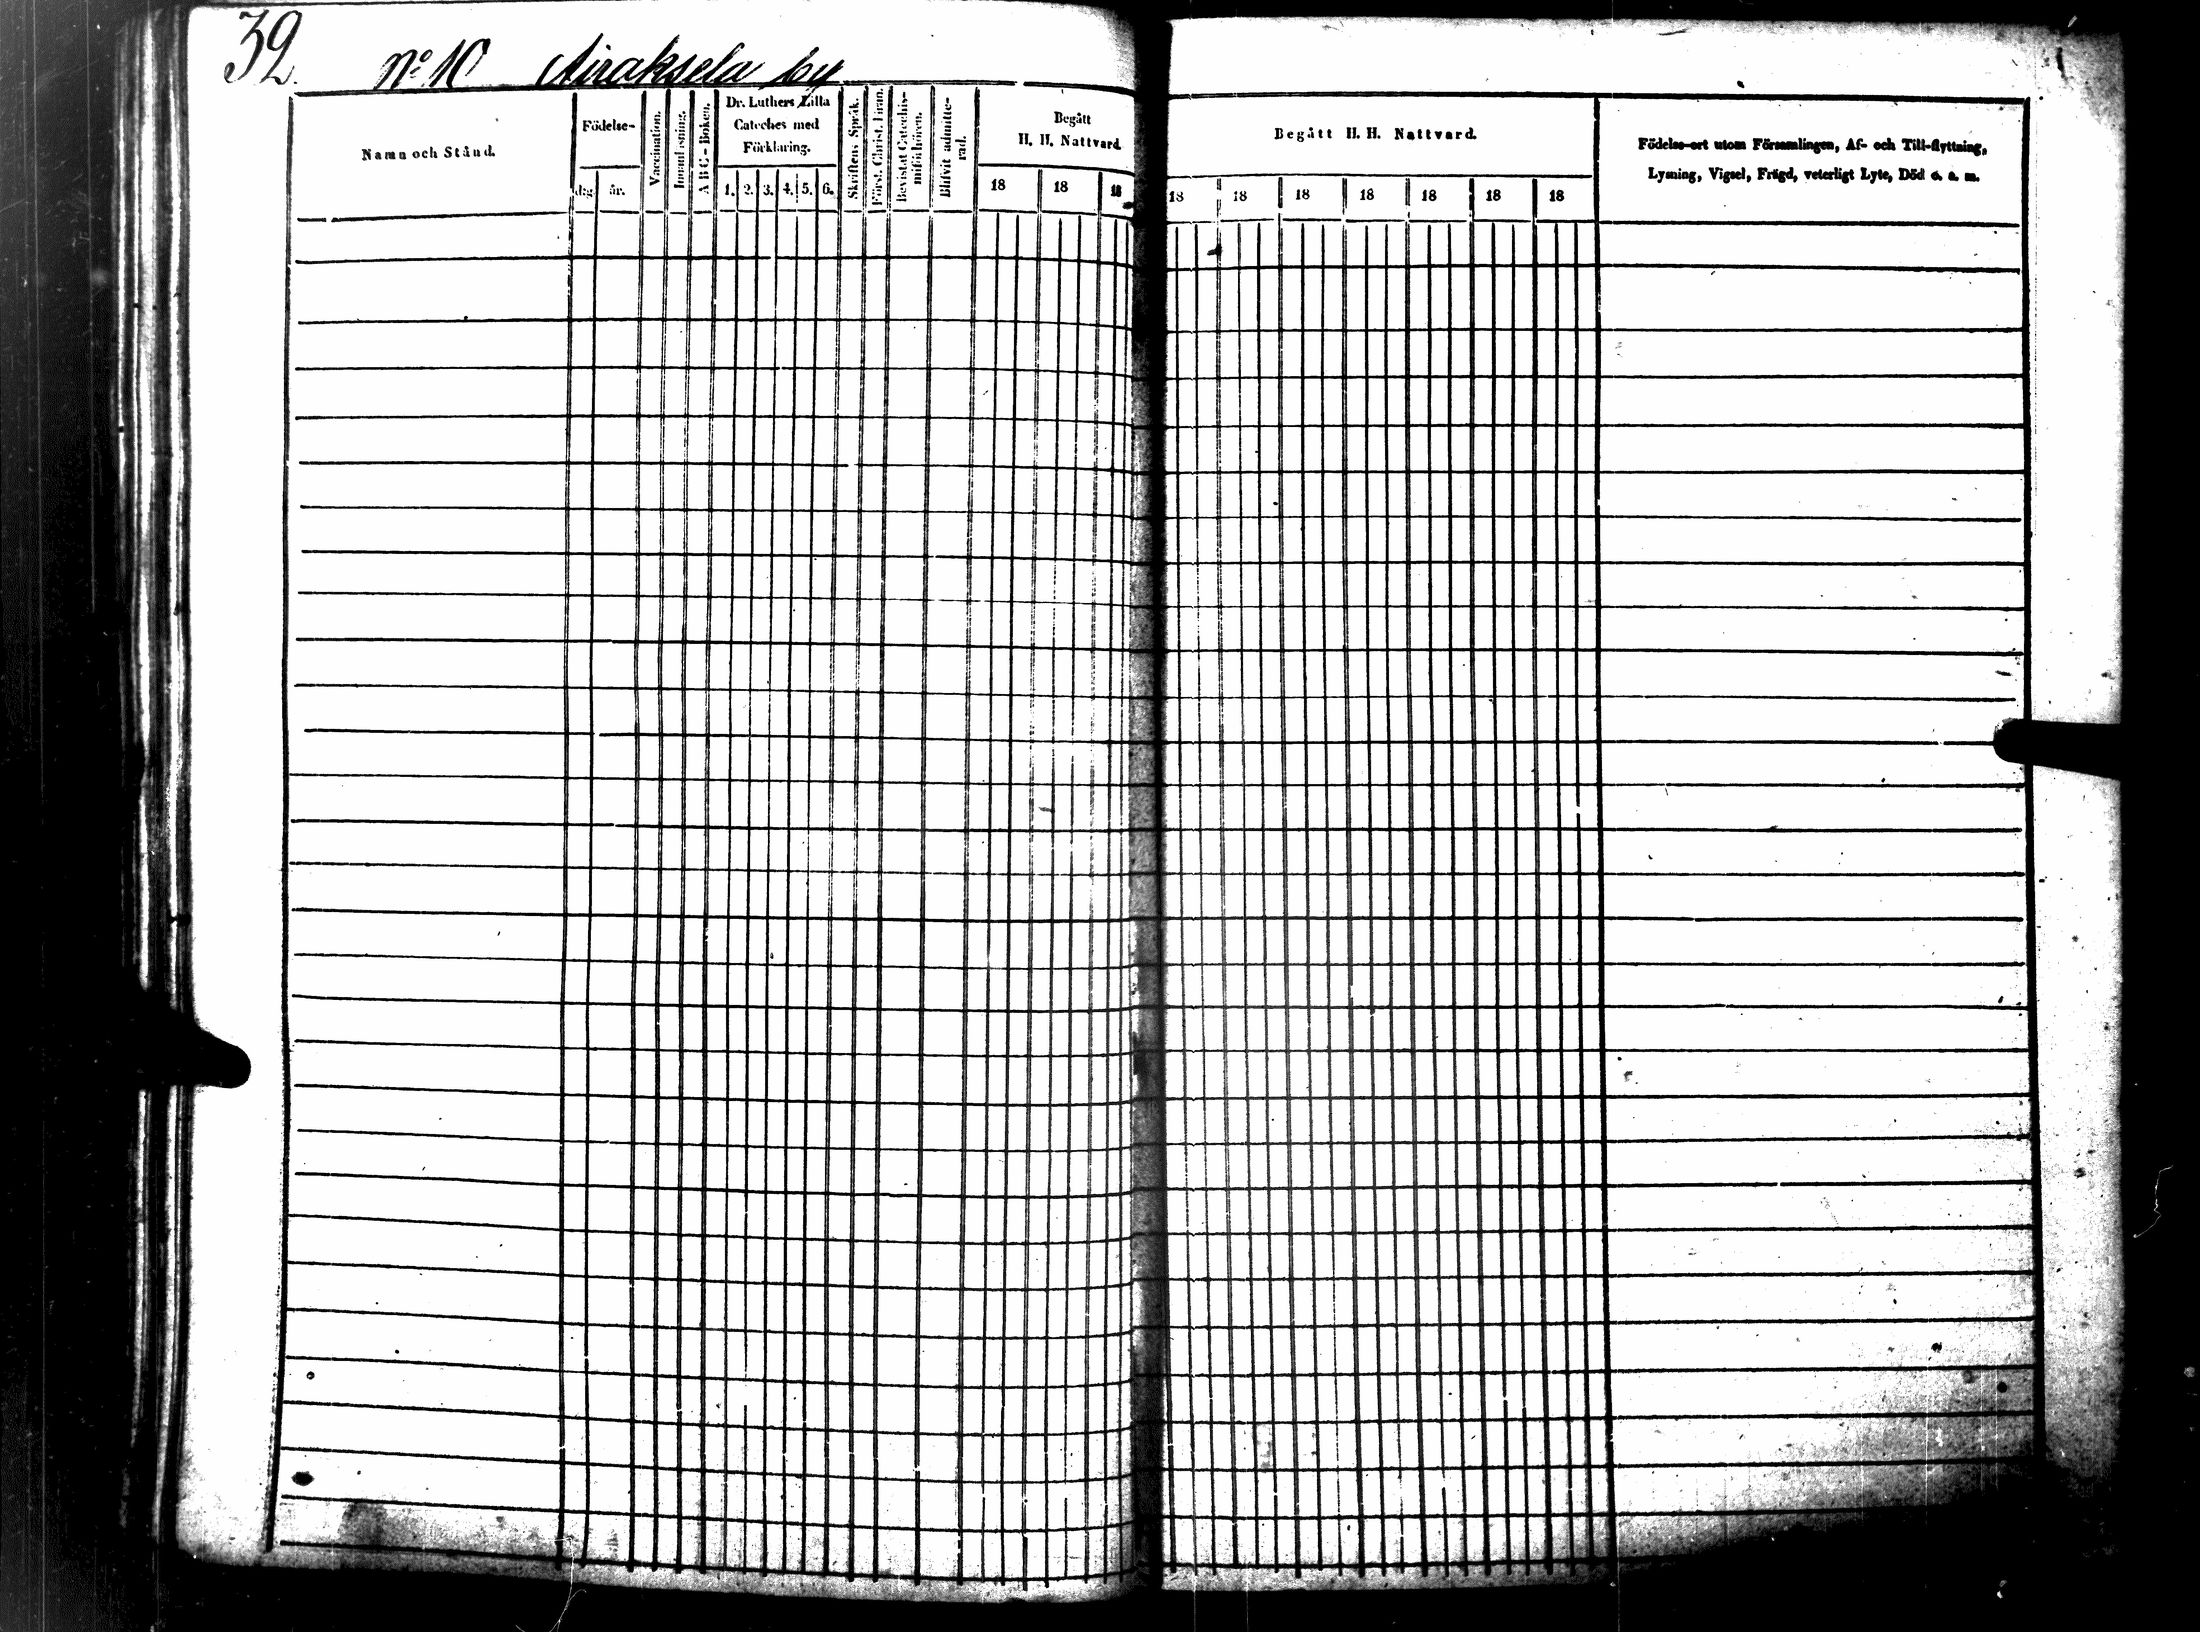 32.
No 10 Airaksela by
Namn och Stånd.
Födelse-
dag. år.
Vaccination.
Innanläsning.
A B C - Boken.
Dr. Luthers Lilla
Cateches med
Förklaring.
1. 2. 3. 4. 5. 6.
Skriftens Språk.
Först. Christ. Läran.
Bevistat Catechis-
miförhören.
Blifvit admitte-
rad.
Begått
H. H. Nattvard.
18 18 18
Begått H. H. Nattvard.
18 18 18 18 18 18 18
Födelse-ort utom Församlingen, Af- och Till-flyttning,
Lysning, Vigsel, Frägd, veterligt Lyte, Död o. s. m.